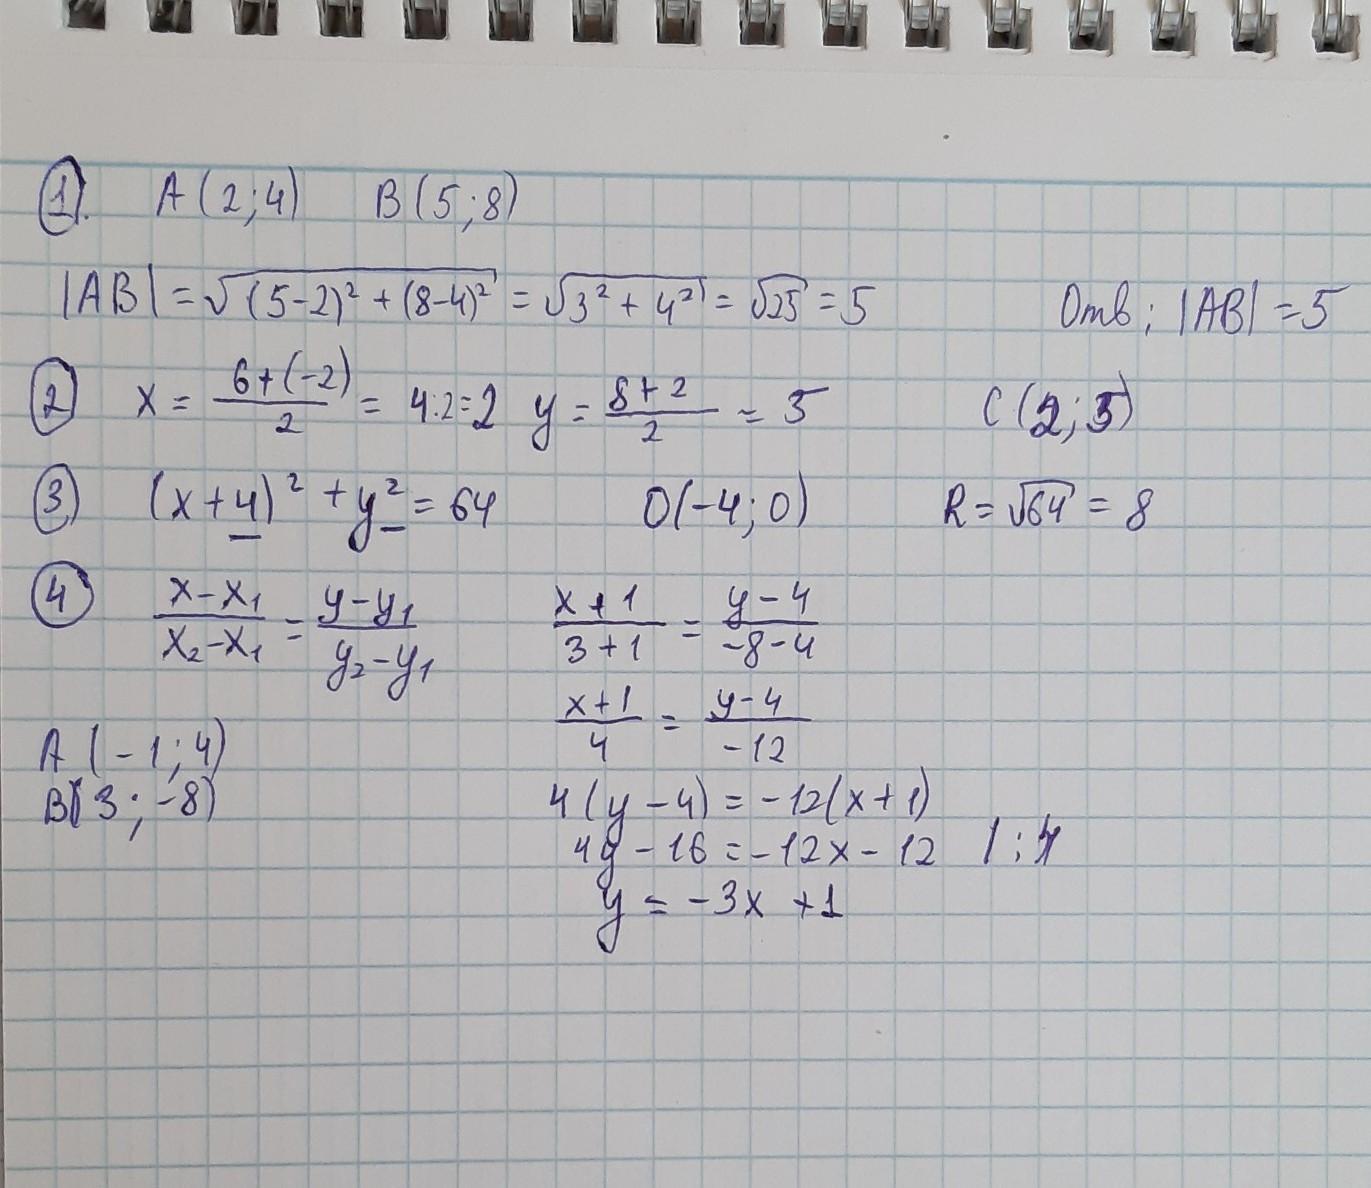 1. A (2;4) B (5;8)
|AB| = √(5-2)² + (8-4)² = √3² + 4² = √25 = 5 Отв; |AB| = 5
2 x = 6+(-2)/2 = 4:2=2 y = 8+2/2 = 5 C (2;5)
3 (x+4)² + y² = 64 O(-4;0) R = √64 = 8
4 x-x₁/x₂-x₁ = y-y₁/y₂-y₁ x+1/3+1 = y-4/-8-4
x+1/4 = y-4/-12
A (-1;4)
B(3;-8) 4(y-4) = -12(x+1)
4y-16 = -12x-12 |:4
y = -3x +1